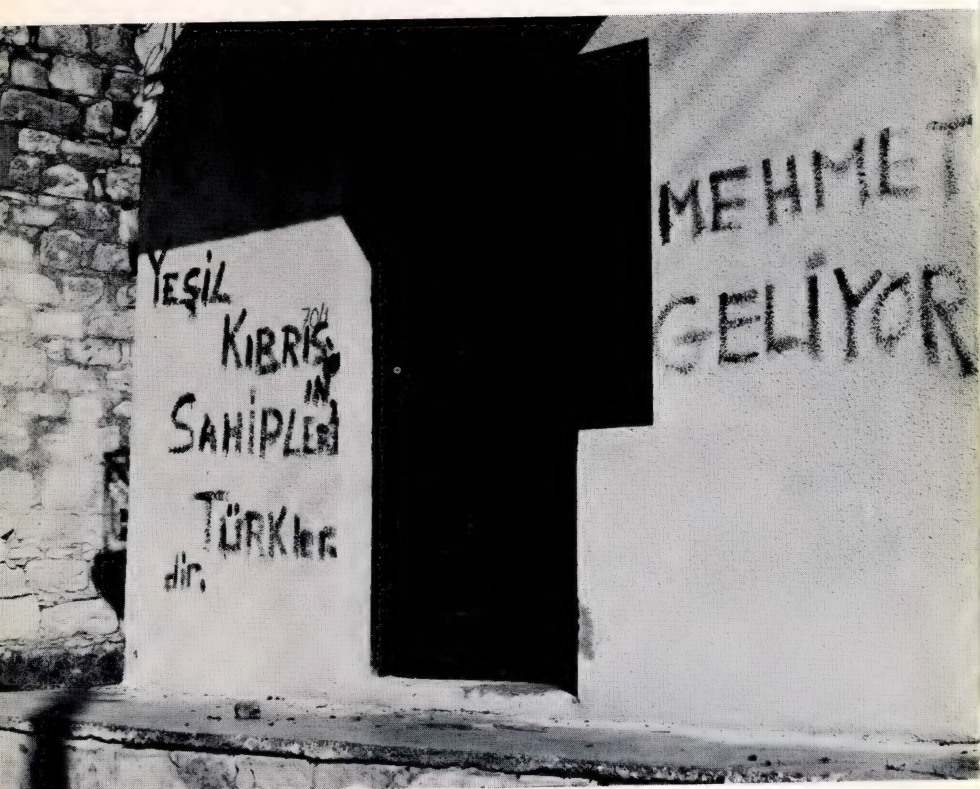 YEŞİL
KIBRIS
İN
SAHİPLERİ
TÜRKler
dir.
704
MEHMET
GELİYOR